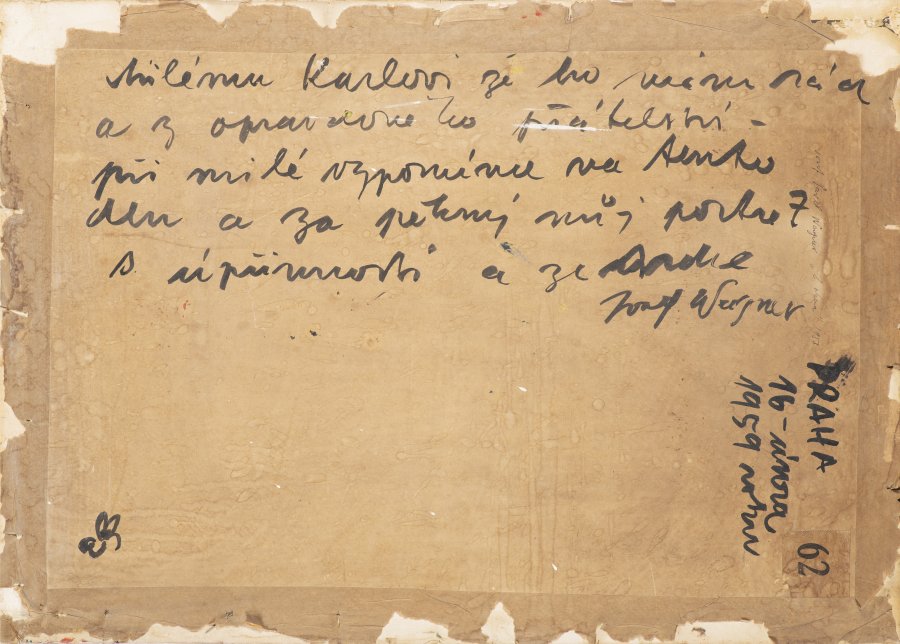 Milému Karlovi že ho mám rád
a z opravdového přátelství –
při milé vzpomínce na tento
den a za pěkný můj portret
s upřímností a ze srdce
Josef Wagner
PRAHA
16 – února
1959 roku
62